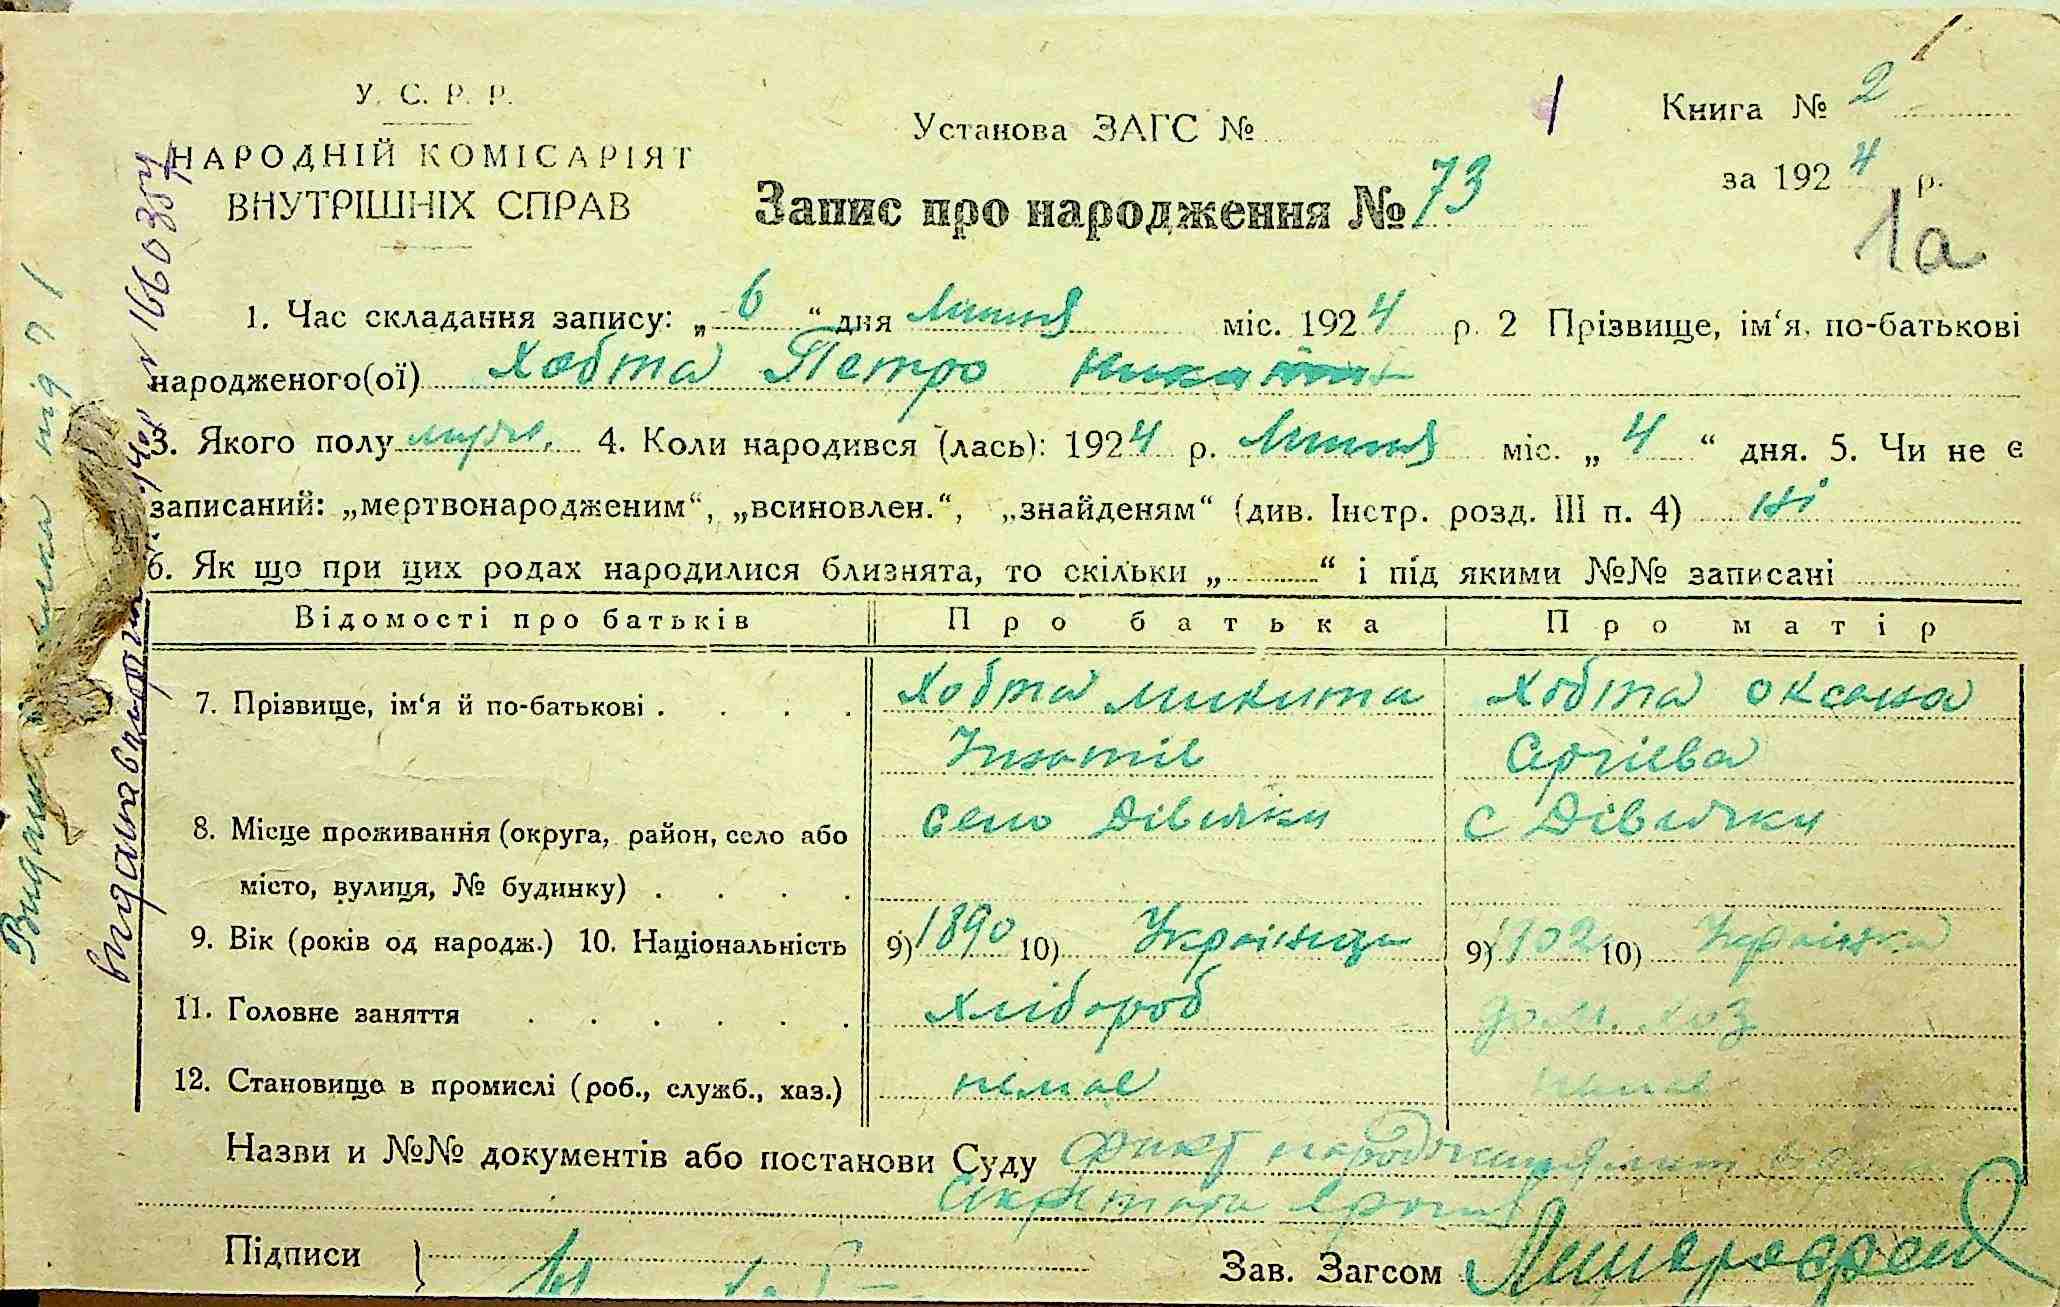 У. С. Р. Р.
НАРОДНІЙ КОМІСАРІЯТ
ВНУТРІШНІХ СПРАВ
Установа ЗАГС №
Запис про народження № 73
1
Книга № 2
за 1924 р.
1а
1. Час складання запису: „ 6 “ дня Липня міс. 1924 р. 2 Прізвище, ім‘я, по-батькові
народженого(ої) Хобта Петро
3. Якого полу 4. Коли народився (лась): 1924 р. Липня міс. „ 4 “ дня. 5. Чи не є
записаний: „мертвонародженим“, „всиновлен.“, „знайденям“ (див. Інстр. розд. III п. 4) ні
6. Як що при цих родах народилися близнята, то скільки „ “ і під якими №№ записані
Відомості про батьків Про батька Про матір
7. Прізвище, ім‘я й по-батькові . . . . Хобта Микита Хобта Оксана
Ізотів Сергієва
8. Місце проживання (округа, район, село або село Дівички с Дівички
місто, вулиця, № будинку) . . . .
9. Вік (років од народж.) 10. Національність 9) 1890 10) Українець 9) 1902 10) Українка
11. Головне заняття . . . . . . хлібороб дом. хоз
12. Становище в промислі (роб., служб., хаз.) немає немає
Назви и №№ документів або постанови Суду факт народження
Секретаря
Підписи }
Зав. Загсом